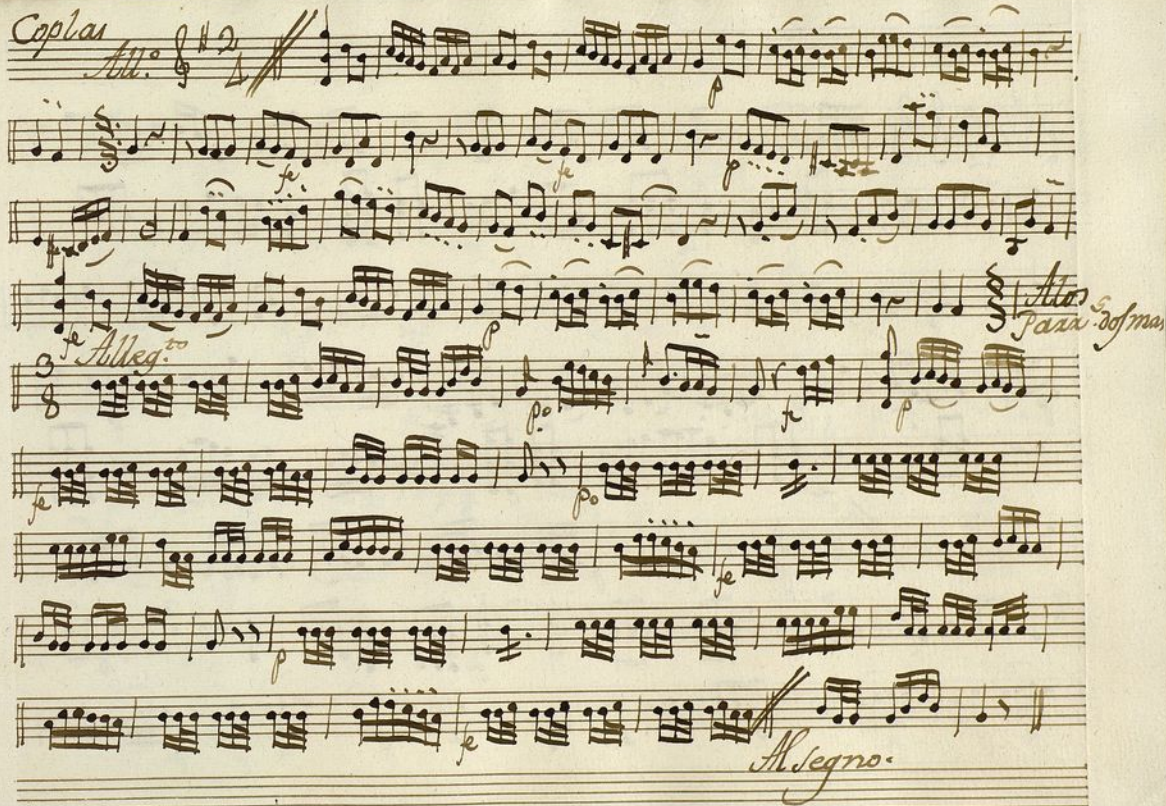 Coplas
All.º 2 4
p
fe fe p
fe p
Alos
Parr.s dos mas
Alleg.to
3 8
p.o fe p
fe p.o
fe
p
fe
Al segno.